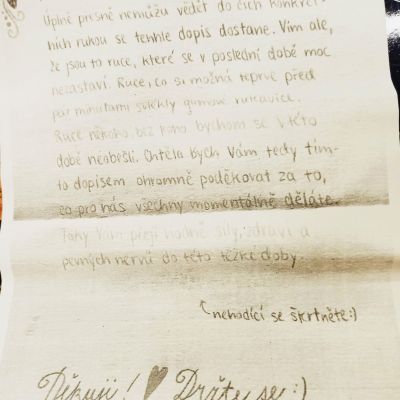 Úplně přesně nemůžu vědět do čích konkrét-
ních rukou se tenhle dopis dostane. Vím ale,
že jsou to ruce, které se v poslední době moc
nezastaví. Ruce, co si možná teprve před
pár minutami svlékly gumové rukavice.
Ruce někoho, bez koho bychom se v této
době neobešli. Chtěla bych Vám tedy tím-
to dopisem ohromně poděkovat za to,
co pro nás všechny momentálně děláte.
Taky Vám přeji hodně síly, zdraví a
pevných nervů do této těžké doby.
nehodící se škrtněte:)
Děkuji! Držte se:)